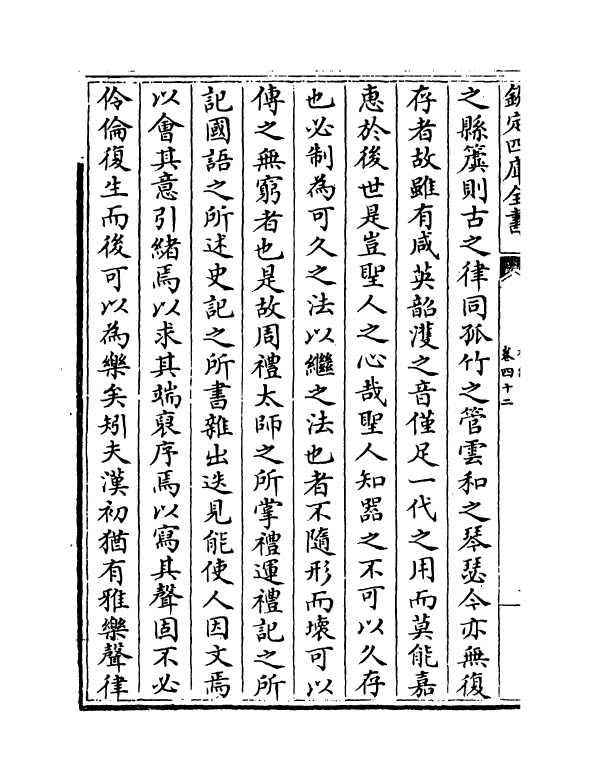 欽定四庫全書
卷四十二
之縣簴則古之律同孤竹之管雲和之琴瑟今亦無復
存者故雖有咸英韶濩之音僅足一代之用而莫能嘉
惠於後世是豈聖人之心哉聖人知器之不可以久存
也必制為可久之法以繼之法也者不隨形而壞可以
傳之無窮者也是故周禮太師之所掌禮運禮記之所
記國語之所述史記之所書雜出迭見能使人因文焉
以會其意引緒焉以求其端裒序焉以寫其聲固不必
伶倫復生而後可以為樂矣矧夫漢初猶有雅樂聲律